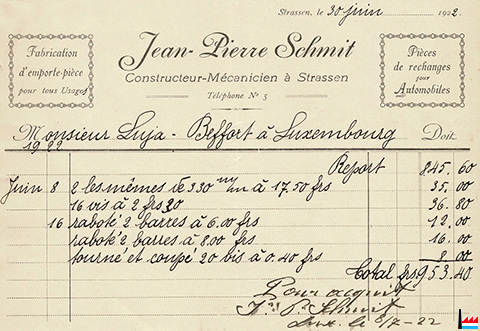 Strassen, le 30 juin 1922.
Fabrication
d'emporte-pièce
pour tous Usages
Jean-Pierre Schmit
Constructeur-Mécanicien à Strassen
Téléphone Nº 5
Pièces
de rechanges
pour
Automobiles
Monsieur Luja - Beffort à Luxembourg Doit
1922
Report 845.60
Juin 8 2 les mêmes de 330 mm à 17.50 frs 35.00
16 vis à 2 frs 30 36.80
16 raboté 2 barres à 6.00 frs 12.00
raboté 2 barres à 8.00 frs 16.00
tourné et coupé 20 bis à 0.40 frs 8.00
Total frs 953.40
Pour acquit
P. Schmit
Lux. le 8/7-22